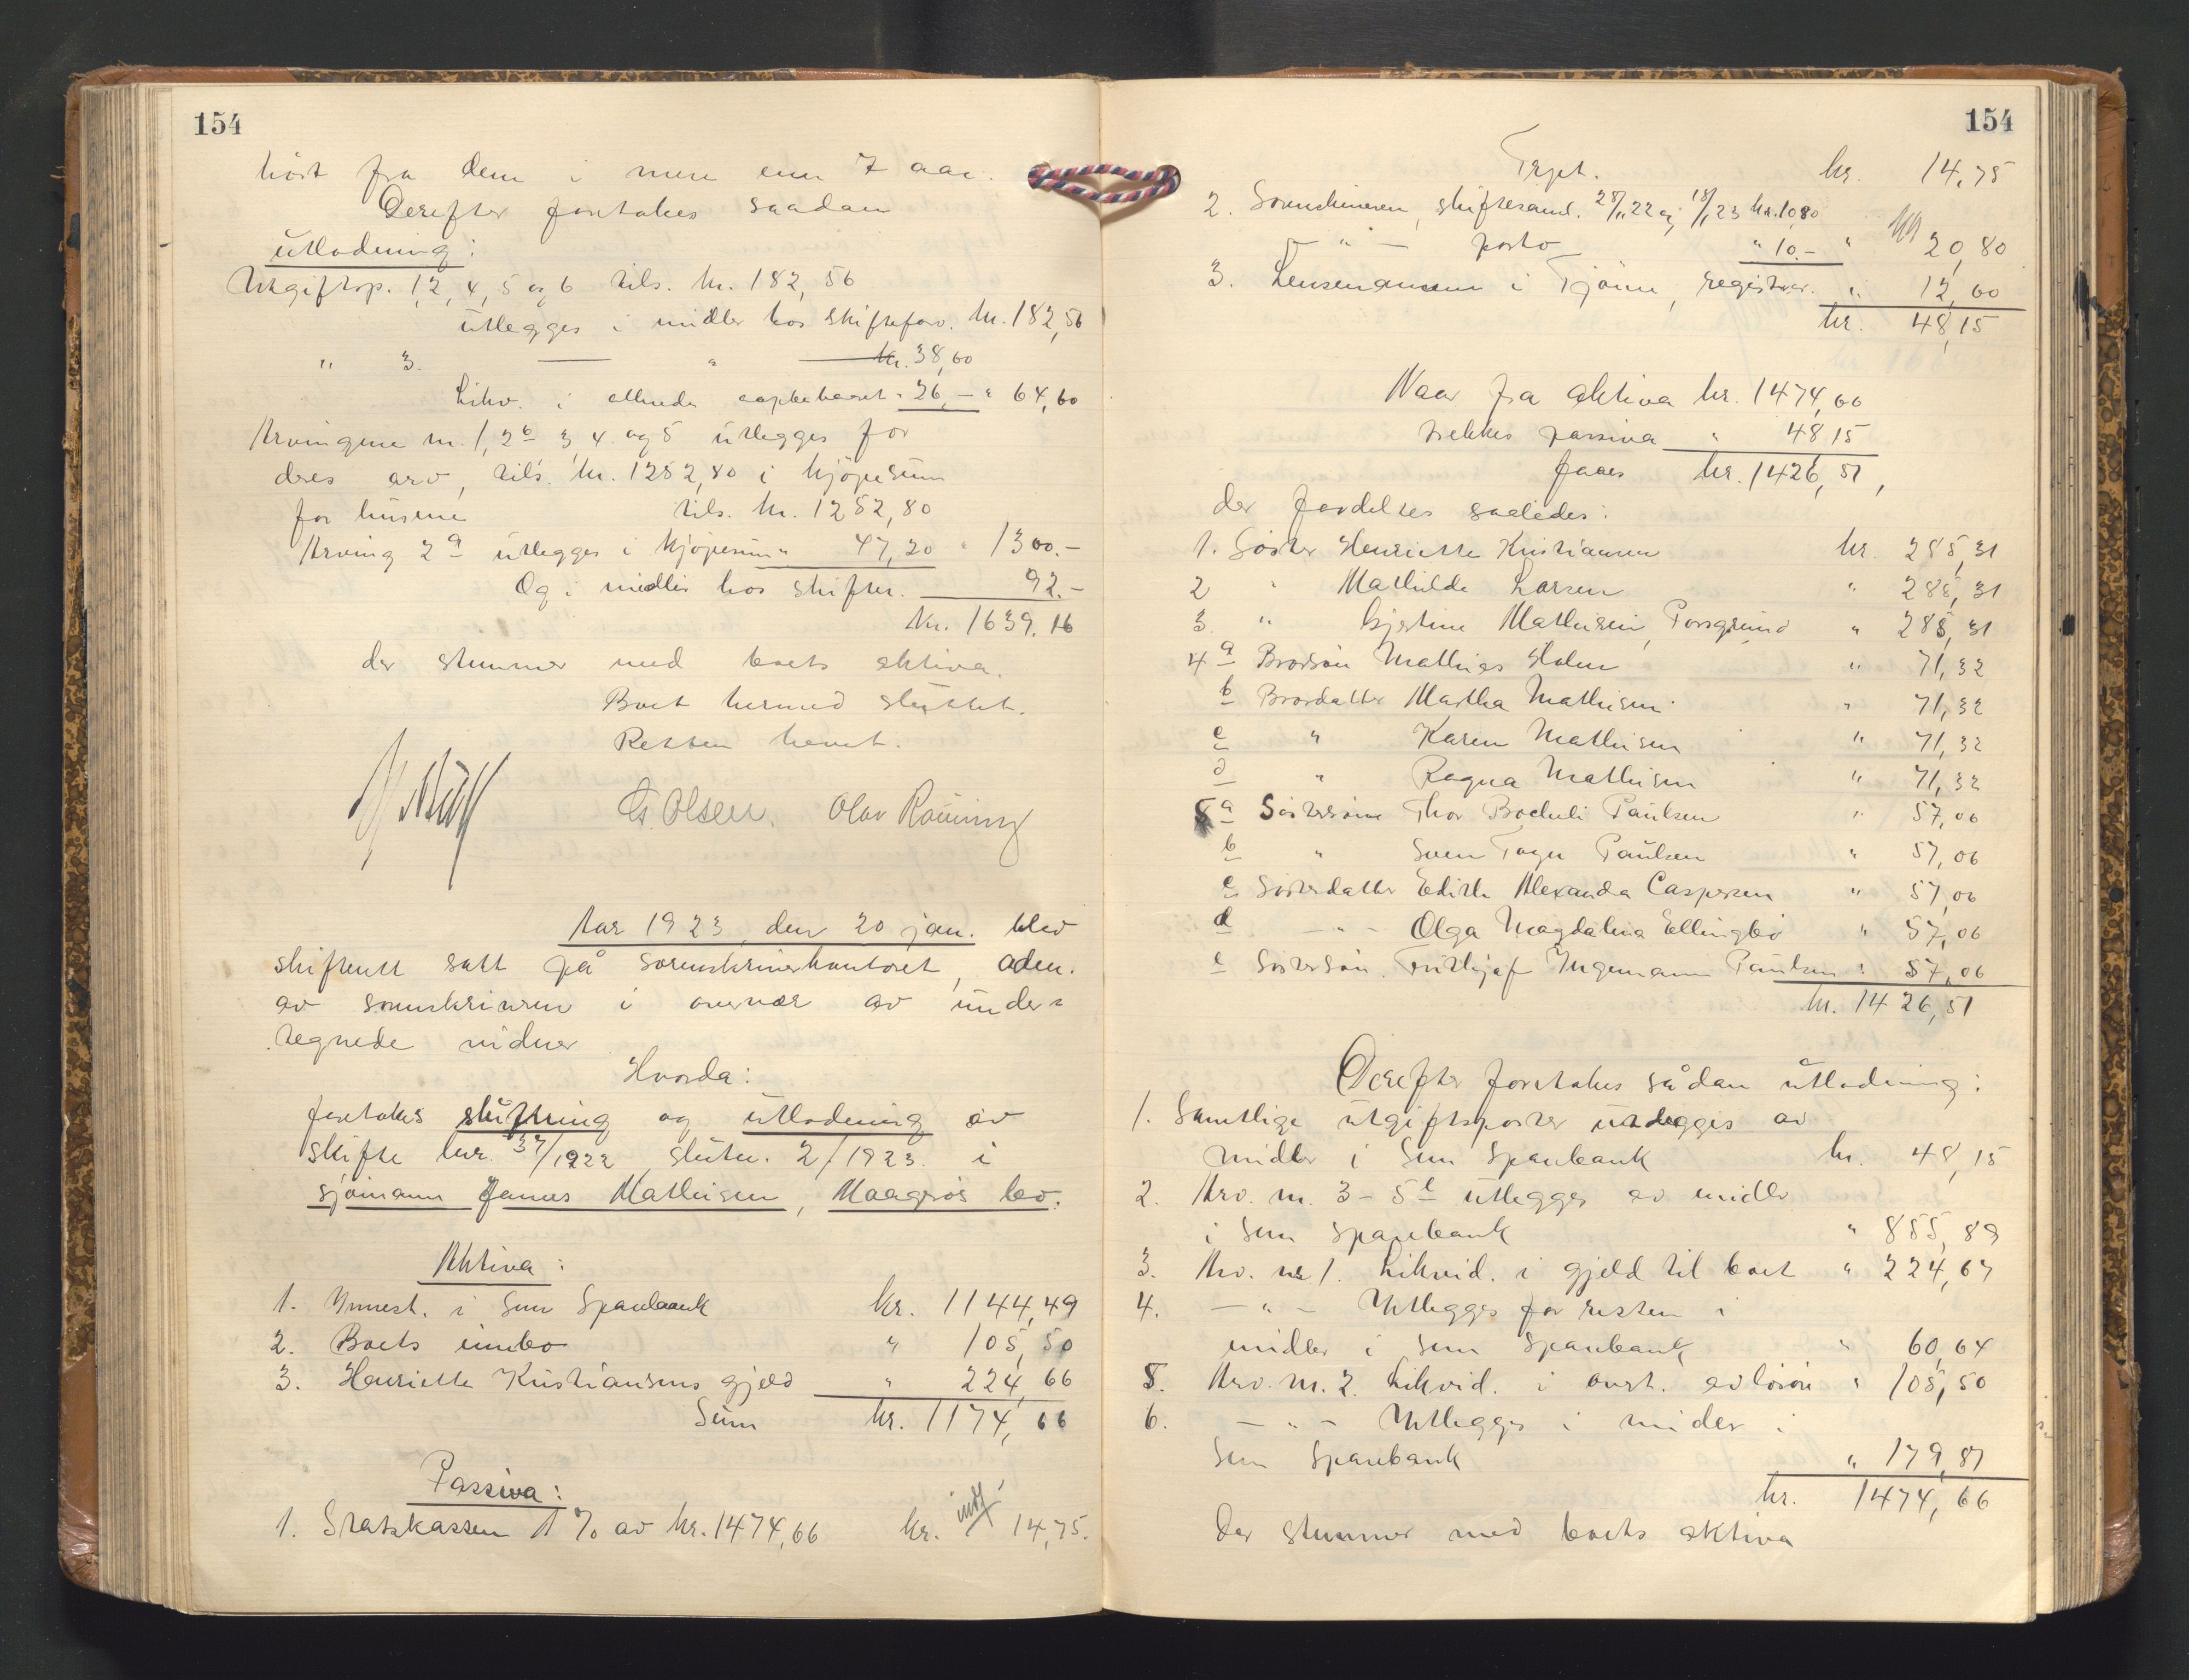 154
hört fra dem i mere enn 7 aar.
Derefter foretokes saadan
utlodning:
Utgiftsp. 1, 2, 4, 5 og 6 tils. kr. 182,56
utlegges i midler hos skifteforv. kr. 182,56
" 3. — " — kr. 38,60
Likv. i allerede oppebaaret " 26,— " 64,60
Arvingene nr. 1, 2b 3, 4 og 5 utlegges for
deres arv, tils. kr. 1252,80 i kjöpesum
for husene tils. kr. 1252,80
Arving 2a utlegges i kjöpesum " 47,20 " 1300.-
Og i midler hos skifter. 92.-
Kr. 1639.16
der stemmer med boets aktiva.
Boet hermed sluttet.
Retten hevet.
G. Olsen. Olav Röining
Aar 1923, den 20 jan. blev
skifterett satt på sorenskriverkontoret, adm.
av sorenskriveren i overvær av under=
tegnede vidner
Hvorda:
foretokes slutning og utlodning av
skifte lnr. 37/1922 slutn. 2/1923 i
sjömann Janus Mathisen, Maagerös bo.
Aktiva:
1. Innest. i Sem Sparebank kr. 1144,49
2. Boets innbo " 105,50
3. Henriette Kristiansens gjeld " 224,66
Sum kr. 1174,66
Passiva:
1. Statskassen 1 % av kr. 1474,66 kr. 14,75.
154
Trpt. kr. 14,75
2. Sorenskriveren, skiftesaml. 28/11 22 og 18/1 23 kr. 10,80
— " — porto " 10.- " 20,80
3. Lensemannen i Tjöme, registrer. " 12,60
kr. 48,15
Naar fra aktiva kr. 1474,66
trekkes passiva " 48,15
faaes kr. 1426,51,
der fordeltes saaledes:
1. Söster Henriette Kristiansen kr. 285,31
2 " Mathilde Larsen " 285,31
3. " Gjertine Mathisen, Porsgrund " 285,31
4 a Brorsön Mathias Holm " 71,32
b Brordatter Martha Mathisen " 71,32
c " Karen Mathisen " 71,32
d " Ragna Mathisen " 71,32
5 a Söstersönn Thor Bocheli Paulsen " 57,06
b " Sven Tager Paulsen " 57,06
c Sösterdatter Edith Alexanda Caspersen " 57,06
d — " — Olga Magdalina Ellingbö " 57,06
e Söstersön. Frithjof Ingemann Paulsen " 57,06
kr. 1426,51
Derefter foretokes sådan utlodning:
1. Samtlige utgiftsposter utlegges av
midler i Sem Sparebank kr. 48,15
2. Arv. nr. 3 - 5e utlegges av midler
i Sem Sparebank " 855,89
3. Arv. nr 1. Likvid. i gjeld til boet " 224,67
4. — " — Utlegges for resten i
midler i Sem Sparebank " 60,64
5. Arv. nr. 2. Likvid. i overt. avlösöre " 105,50
6. — " — Utlegges i midler i
Sem Sparebank " 179,81
kr. 1474,66
der stemmer med boets aktiva